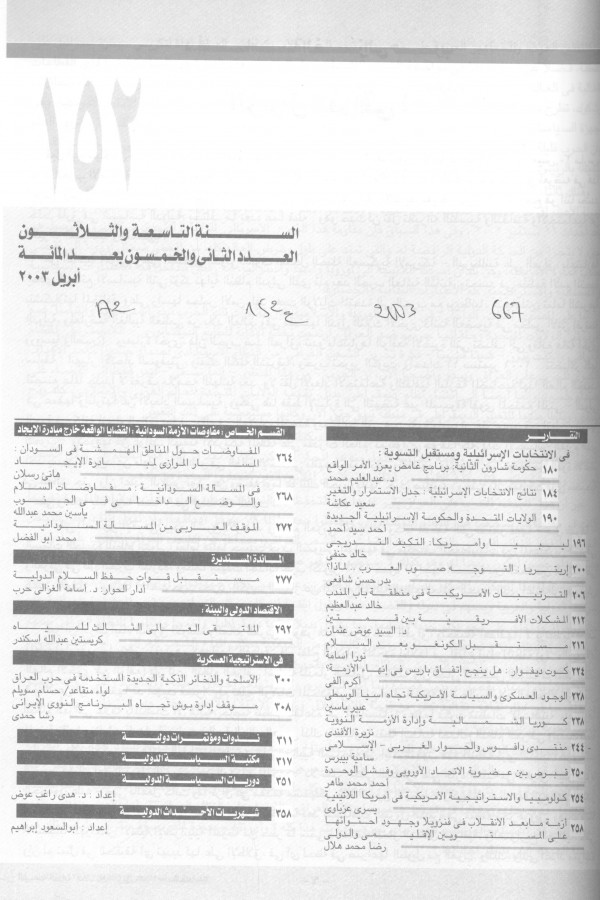 ١٥٢
السنة التاسعة والثلاثون
العدد الثانى والخمسون بعد المائة
أبريل ٢٠٠٣
A2 152ع 2003 667
التقارير
فى الانتخابات الإسرائيلية ومستقبل التسوية :
١٨٠ حكومة شارون الثانية: برنامج غامض يعزز الأمر الواقع
د. عبدالعليم محمد
١٨٤ نتائج الانتخابات الإسرائيلية : جدل الاستمرار والتغير
سعيد عكاشة
١٩٠ الولايات المتحدة والحكومة الإسرائيلية الجديدة
أحمد سيد أحمد
١٩٦ ليبيا وأمريكا: التكيف التدريجى
خالد حنفى
٢٠٠ إريتريا : التوجه صوب العرب .. لماذا؟
بدر حسن شافعى
٢٠٦ الترتيبات الأمريكية فى منطقة باب المندب
خالد عبدالعظيم
٢١٢ المشكلات الأفريقية بين قمتين
د. السيد عوض عثمان
٢١٦ مستقبل الكونغو بعد السلام
نورا أسامة
٢٢٤ كوت ديفوار : هل ينجح إتفاق باريس فى إنهاء الأزمة؟
أكرم ألفى
٢٢٨ الوجود العسكرى والسياسة الأمريكية تجاه آسيا الوسطى
عبير ياسين
٢٣٨ كوريا الشمالية وإدارة الأزمة النووية
نزيرة الأفندى
٢٤٤ منتدى دافوس والحوار الغربى - الإسلامى
سامية بيبرس
٢٥٠ قبرص بين عضوية الاتحاد الأوروبى وفشل الوحدة
أحمد محمد طاهر
٢٥٤ كولومبيا والاستراتيجية الأمريكية فى أمريكا اللاتينية
يسرى عزباوى
٢٥٨ أزمة مابعد الانقلاب فى فنزويلا وجهود احتوائها
على المستويين الإقليمى والدولى
رضا محمد هلال
القسم الخاص : مفاوضات الأزمة السودانية : القضايا الواقعة خارج مبادرة الإيجاد
٢٦٤ المفاوضات حول المناطق المهمشة فى السودان :
المسار الموازى لمبادرة الإيجاد
هانئ رسلان
٢٦٨ فى المسألة السودانية : مفاوضات السلام
والوضع الداخلى فى الجنوب
ياسين محمد عبدالله
٢٧٢ الموقف العربى من المسألة السودانية
محمد أبو الفضل
المائدة المستديرة
٢٧٧ مستقبل قوات حفظ السلام الدولية
أدار الحوار: د. أسامة الغزالى حرب
الاقتصاد الدولى والبيئة :
٢٩٢ الملتقى العالمى الثالث للمياه
كريستين عبدالله اسكندر
فى الاستراتيجية العسكرية
٣٠٠ الأسلحة والذخائر الذكية الجديدة المستخدمة فى حرب العراق
لواء متقاعد/ حسام سويلم
٣٠٨ موقف إدارة بوش تجاه البرنامج النووى الإيرانى
رشا حمدى
٣١١ ندوات ومؤتمرات دولية
٣١٧ مكتبة السياسة الدولية
٣٥١ دوريات السياسة الدولية
إعداد : د. هدى راغب عوض
٣٥٨ شهريات الأحداث الدولية
إعداد : أبوالسعود إبراهيم